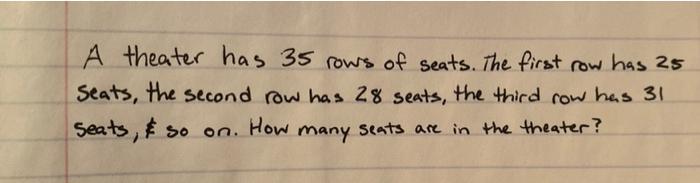 A theater has 35 rows of seats. The first row has 25
seats, the second row has 28 seats, the third row has 31
seats, & so on. How many seats are in the theater?